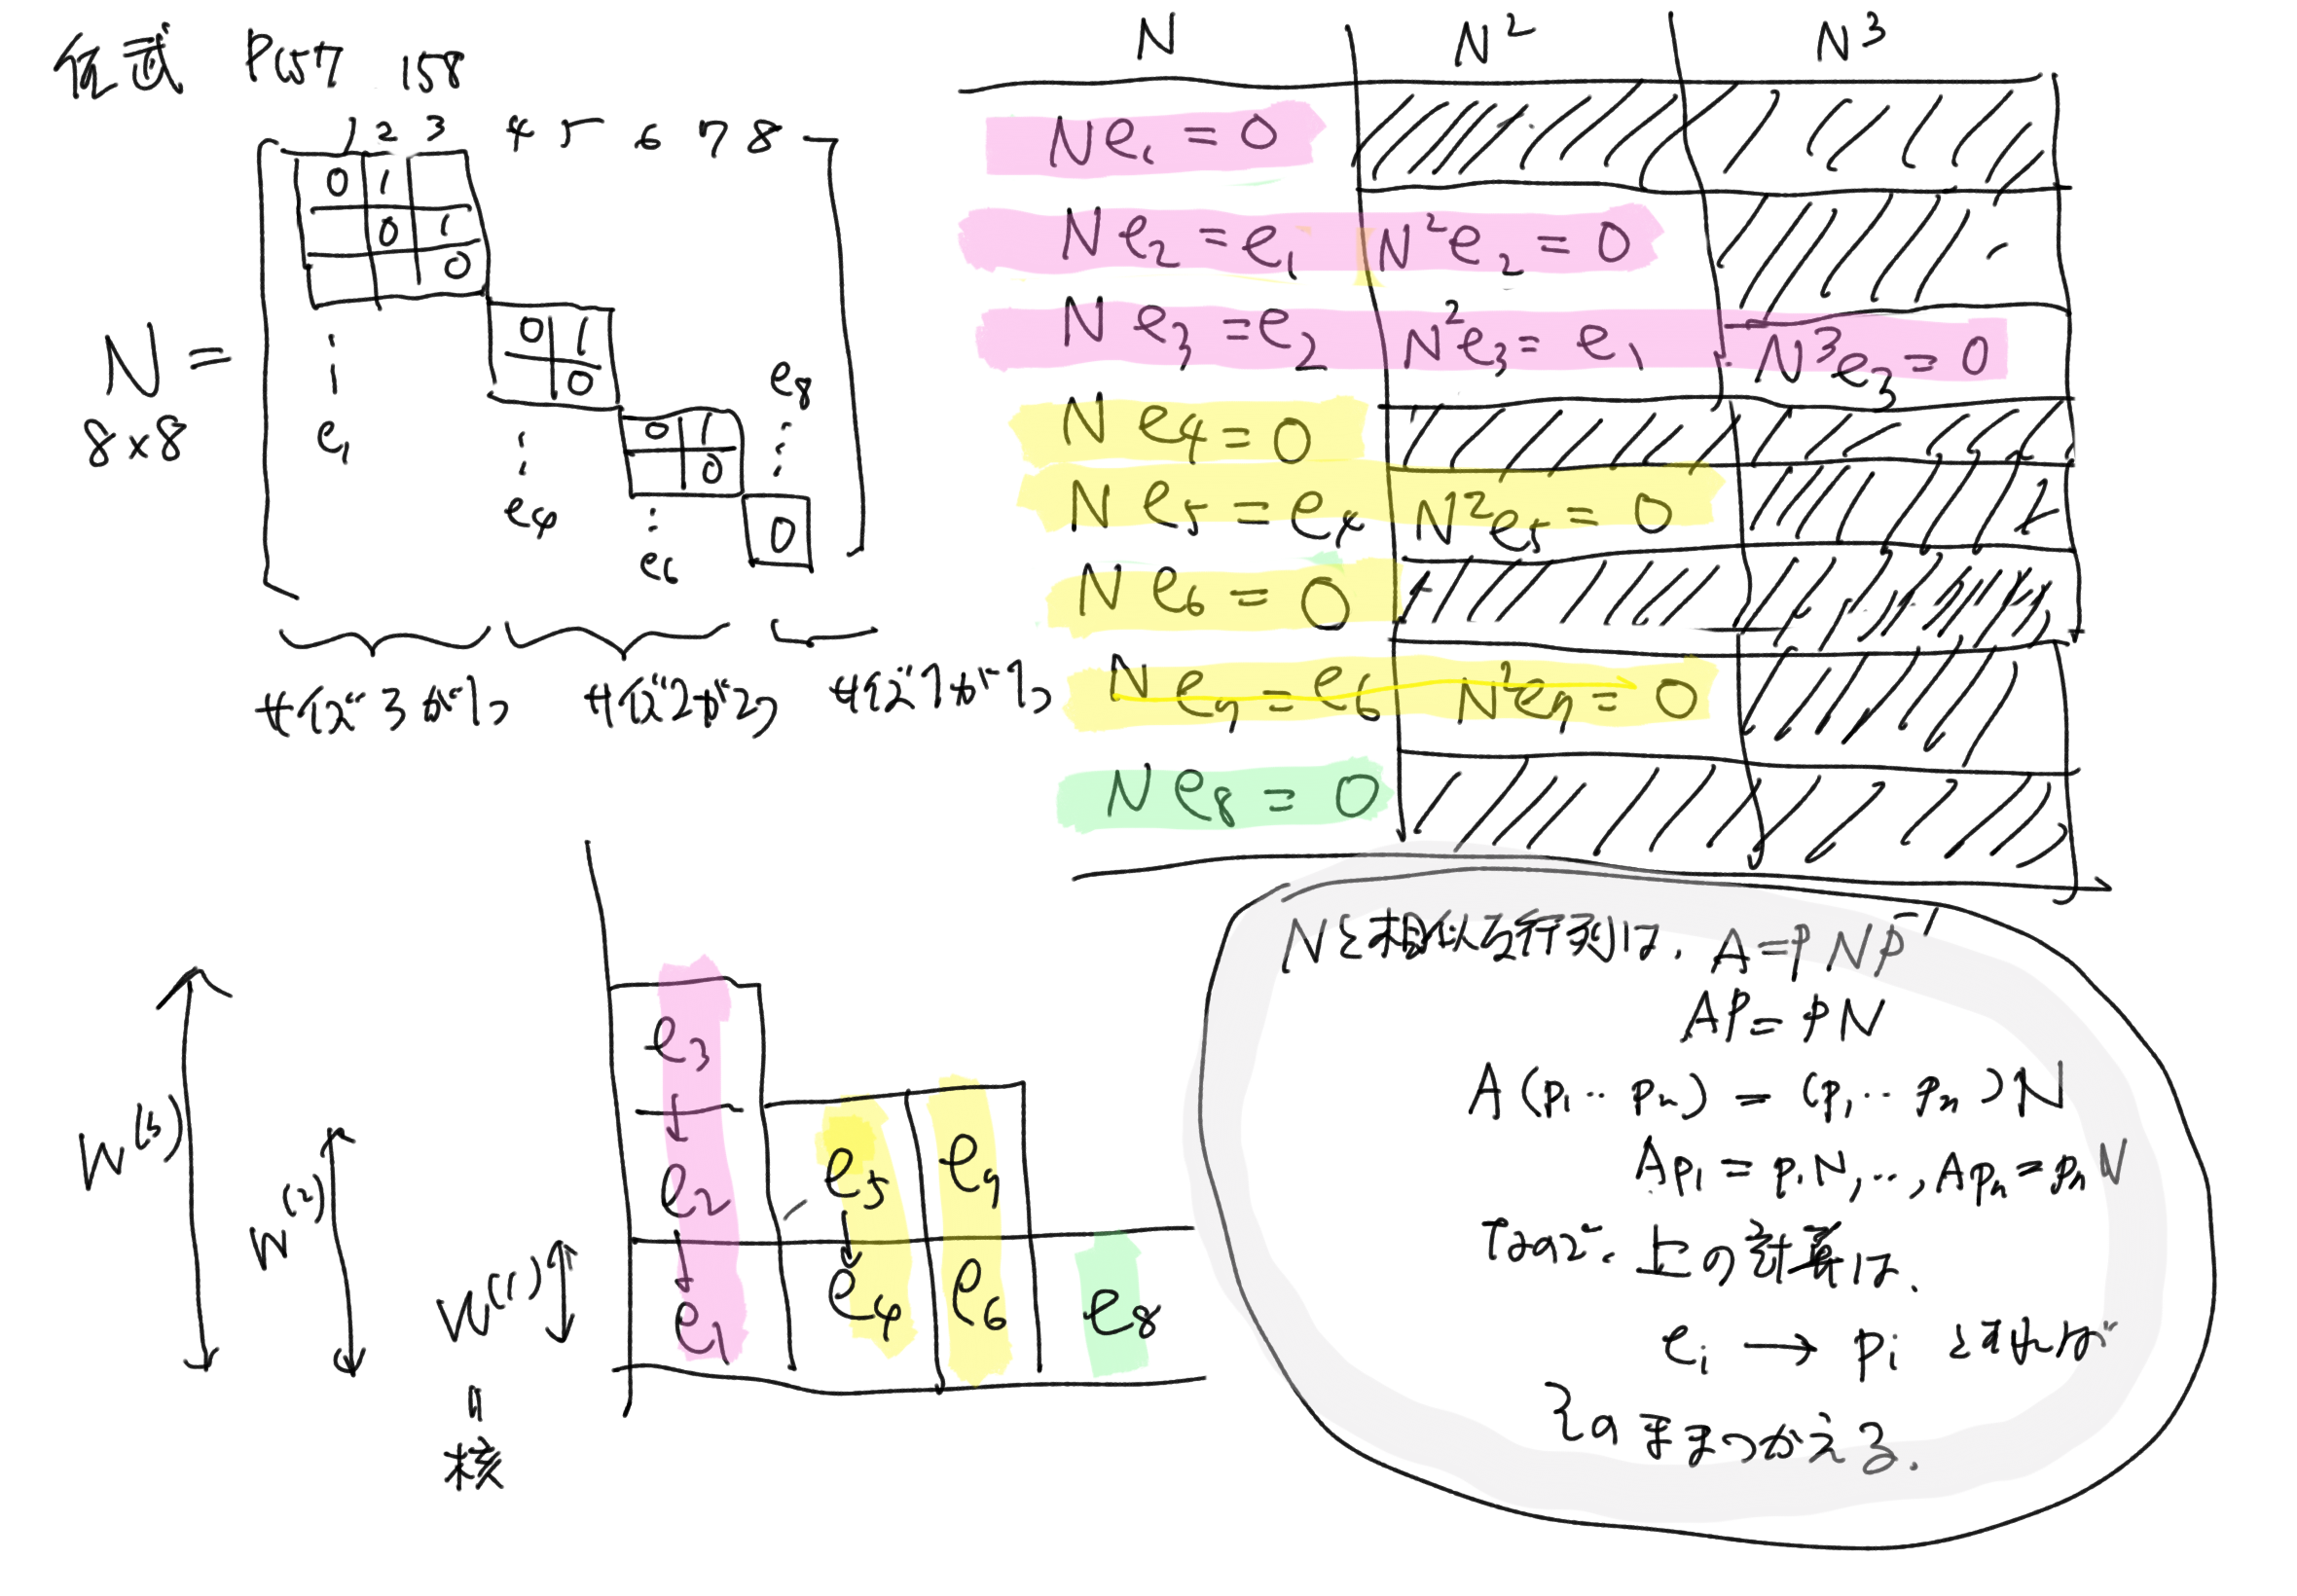 P157 158
1 2 3 4 5 6 7 8
0 1
0 1
0
0 1
0
0 1
0
0
N =
8×8
e₁
e₄
e₆
e₈
サイズ3が1つ
サイズ2が2つ
サイズ1が1つ
N N² N³
Ne₁ = 0
Ne₂ = e₁ N²e₂ = 0
Ne₃ = e₂ N²e₃ = e₁ N³e₃ = 0
Ne₄ = 0
Ne₅ = e₄ N²e₅ = 0
Ne₆ = 0
Ne₇ = e₆ N²e₇ = 0
Ne₈ = 0
W⁽³⁾
W⁽²⁾
W⁽¹⁾
=
核
e₃
e₂ e₅ e₇
e₁ e₄ e₆ e₈
Nと相似な行列は, A = PNP⁻¹
AP = PN
A(p₁‥pₙ) = (p₁‥pₙ)N
Ap₁ = p₁N,‥, Apₙ = pₙN
なので、上の計算は,
eᵢ → pᵢ とすれば
そのままつかえる.